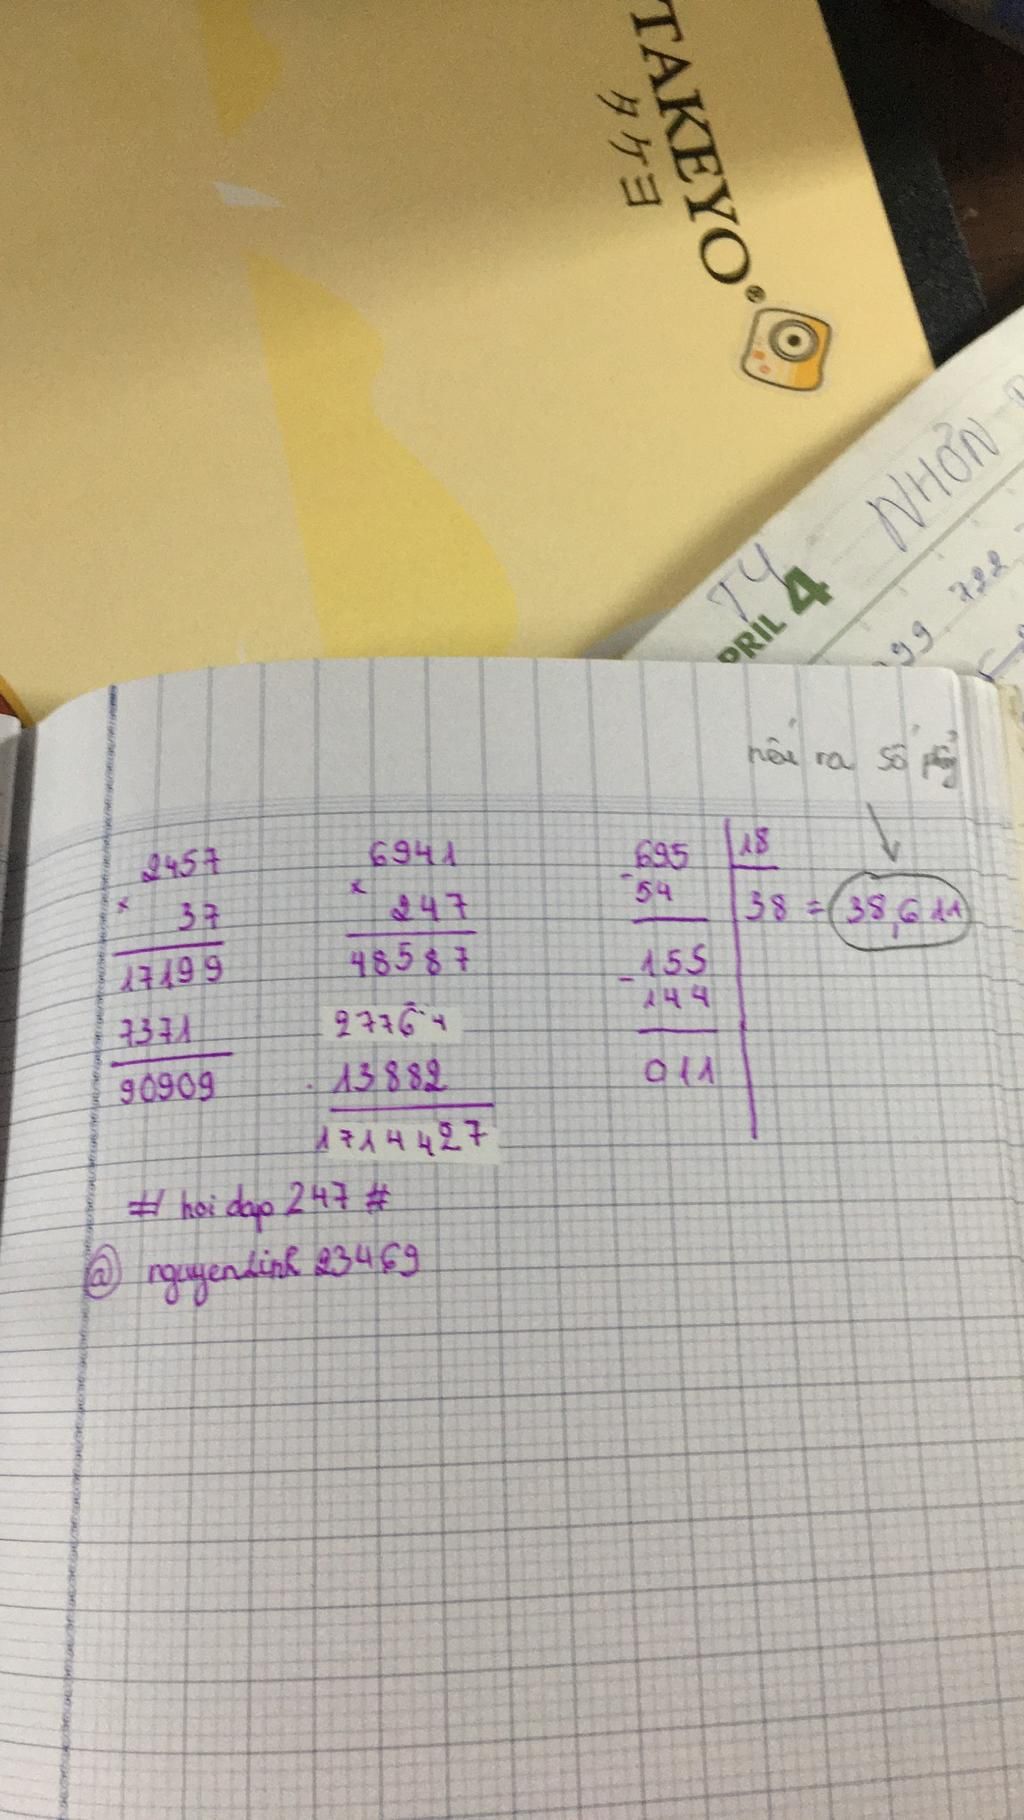 TAKEYO®
タケヨ
NHƠN
T4
PRIL 4
722
99
nếu ra số phẩy
2457
×
37
17199
7371
90909
6941
×
247
48587
27764
13882
1714427
695 18
-
54
38 = 38,611
155
-
144
011
# hoi dap 247 #
@ nguyenLinh 23469